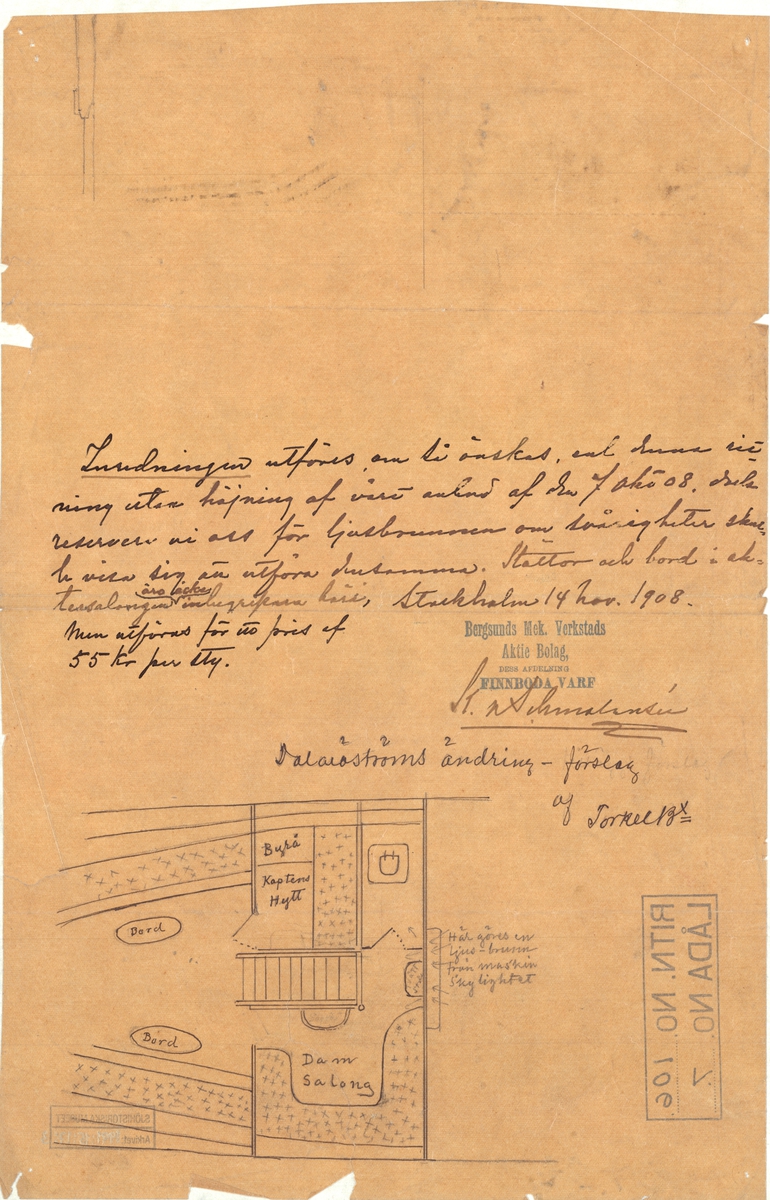 Inredningen utföres, om så önskas, enl denna rit-
ning utan höjning af vårt anbud af den 7 okt 08, dock
reservera vi oss för ljusbrunnen om svårigheter skul-
le visa sig att utföra densamma. Stättor och bord i ak-
tersalongen äro icke inbegripna häri, Stockholm 14 nov. 1908.
men utföras för ett pris af
55 Kr per sty.
Bergsunds Mek. Verkstads
Aktie Bolag,
DESS AFDELNING
FINNBODA VARF
Dalaröströms ändring-förslag
af Torkel
Byrå
Kaptens
Hytt
Bord
Här göres en
ljus-brunn
från maskin
skylightet
Bord
Dam
Salong
LÅDA NO. 7
RITN. NO 106
SJÖHISTORISKA MUSEET
Arkivet